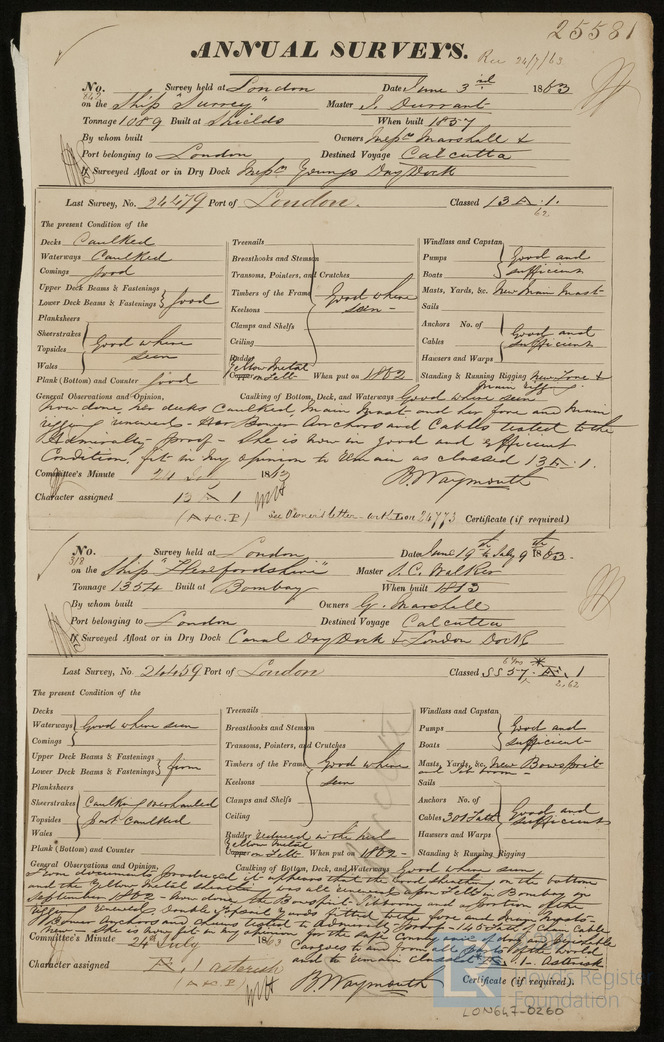 25581
ANNUAL SURVEYS. Rec 24/7/63
No. Survey held at London Date June 3rd. 1863
842 on the Ship "Surrey" Master S. Durrant
Tonnage 1089 Built at Shields When built 1857
By whom built Owners Messrs Marshall &
Port belonging to London Destined Voyage Calcutta
If Surveyed Afloat or in Dry Dock Messrs Youngs Dry Dock
Last Survey, No. 24479 Port of London. Classed 13 A. 1.
62
The present Condition of the
Decks Caulked Treenails Windlass and Capstan
Waterways Caulked Breasthooks and Stemson Pumps Good and
Comings good Transoms, Pointers, and Crutches Boats sufficient
Upper Deck Beams & Fastenings Timbers of the Frame Good where Masts, Yards, &c. New Main Mast
Lower Deck Beams & Fastenings good Keelsons seen - Sails
Planksheers Clamps and Shelfs Anchors No. of Good and
Sheerstrakes Ceiling Cables sufficient
Topsides Good where Rudder Hawsers and Warps
Wales seen Yellow Metal
Plank (Bottom) and Counter good Copper on Felt When put on 1862 Standing & Running Rigging New Fore &
main rigging
General Observations and Opinion, Caulking of Bottom, Deck, and Waterways Good where seen
now done, her decks Caulked, Main Mast and her fore and Main
rigging renewed - Bower Anchors and Cables tested to the
Admiralty proof - She is now in good and efficient
Condition, fit in my opinion to remain as classed 13 A. 1.
Committee's Minute 24 July 1863 B. Waymouth
Character assigned 13 A 1
(A & C. P) see Owners letter Lon 24773 Certificate (if required)
No. Survey held at London Date June 19th & July 9th 1863.
318 on the Ship "Herefordshire" Master S. C. Walker
Tonnage 1354 Built at Bombay When built 1813
By whom built Owners G. Marshall
Port belonging to London Destined Voyage Calcutta
If Surveyed Afloat or in Dry Dock Canal Dry Dock & London Docks
Last Survey, No. 24459 Port of London Classed SS 57. A. 1
2.62
The present Condition of the
Decks Treenails Windlass and Capstan
Waterways Good where seen Breasthooks and Stemson Pumps Good and
Comings Transoms, Pointers, and Crutches Boats sufficient
Upper Deck Beams & Fastenings Timbers of the Frame Good where Masts, Yards, &c. New Bowsprit
Lower Deck Beams & Fastenings firm Keelsons seen and Jib boom - Sails
Planksheers Clamps and Shelfs Anchors No. of
Sheerstrakes Caulking overhauled Ceiling Cables 301 fath Good and
Topsides part Caulked Rudder renewed in the heel Hawsers and Warps sufficient
Wales Yellow Metal
Plank (Bottom) and Counter Copper on Felt When put on 1862 - Standing & Running Rigging
General Observations and Opinion, Caulking of Bottom, Deck, and Waterways Good where seen
From documents produced it appears that the wood sheathing on the bottom
and the Yellow Metal sheathing was all renewed upon Felt in Bombay in
September 1862 - now done the Bowsprit Jibboom and a portion of the
rigging renewed double topsail yards fitted to the fore and main Masts -
Bower Anchors and Chains tested to Admiralty proof - 145 fath of Chain Cable
New - She is now fit in my opinion for the safe Conveyance of dry and perishable
Cargoes to and from all parts of the world
and to remain classed A. 1. Asterisk
Committee's Minute 24th July 1863
Character assigned A. 1 asterisk
(A & C. P B. Waymouth Certificate (if required).
Lloyd's Register
Foundation
LON647-0260